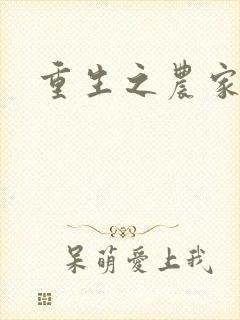 重生之農家
呆萌愛上我